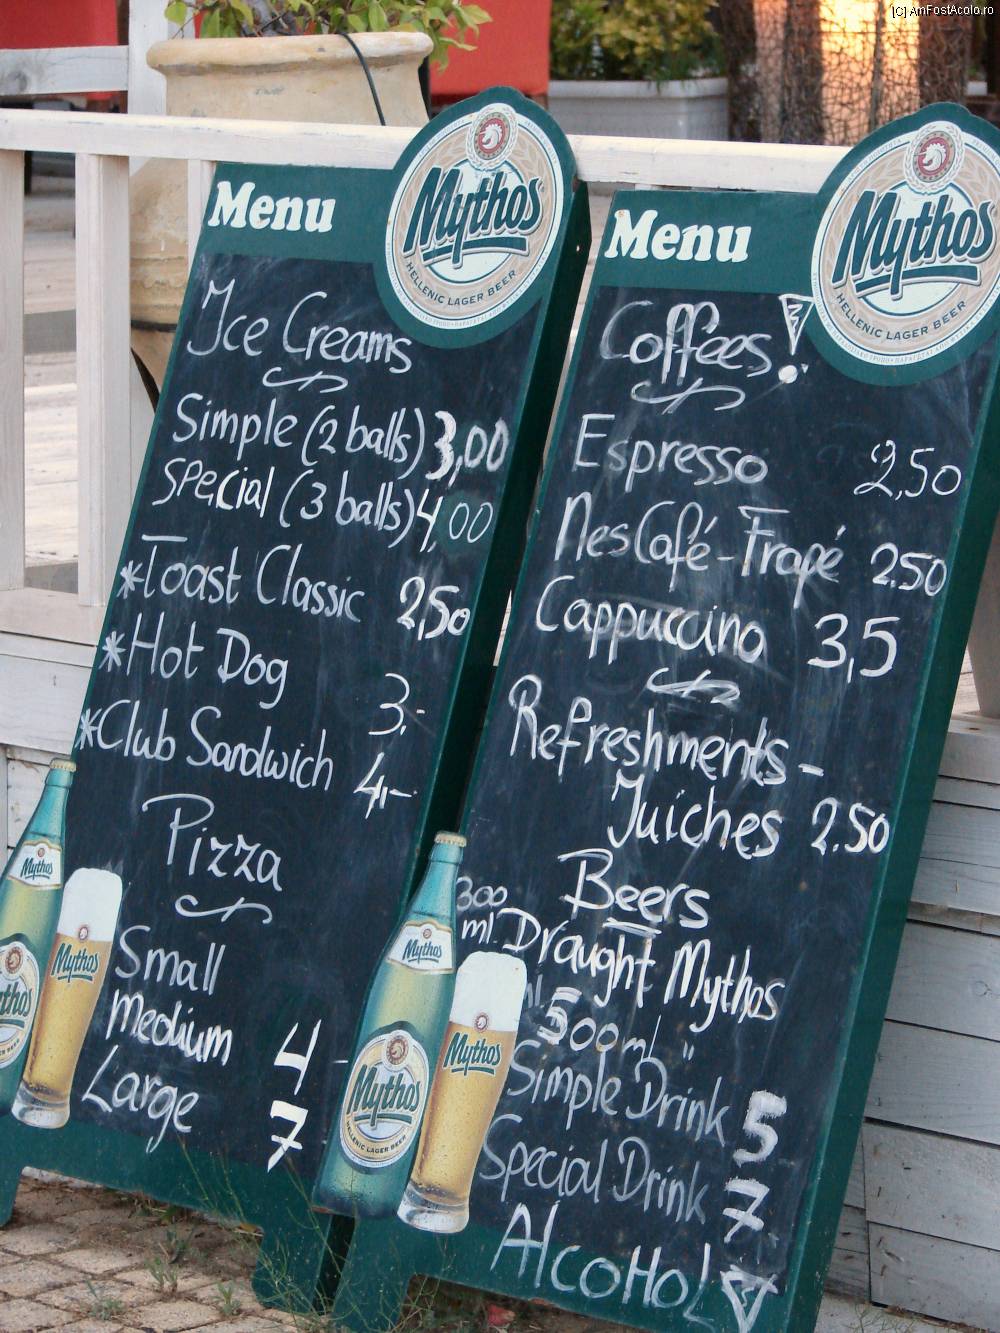 [c] AmFostAcolo.ro
Menu
Mythos
HELLENIC LAGER BEER
Ice Creams
Simple (2 balls) 3,00
Special (3 balls) 4,00
*Toast Classic 2,50
*Hot Dog 3,-
*Club Sandwich 4,-
Pizza
Small
Medium 4 -
Large 7
Mythos
Mythos
Mythos
Menu
Mythos
HELLENIC LAGER BEER
Coffees!
Espresso 2,50
NesCafé - Frapé 2.50
Cappuccino 3,5
Refreshments -
Juiches 2.50
Beers
300
ml Draught Mythos
500ml "
Simple Drink 5
Special Drink 7
AlcoHol
Mythos
Mythos
Mythos
HELLENIC LAGER BEER